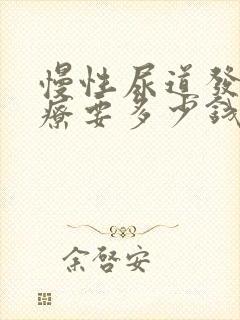 慢性尿道發
療要多少錢
余啓安